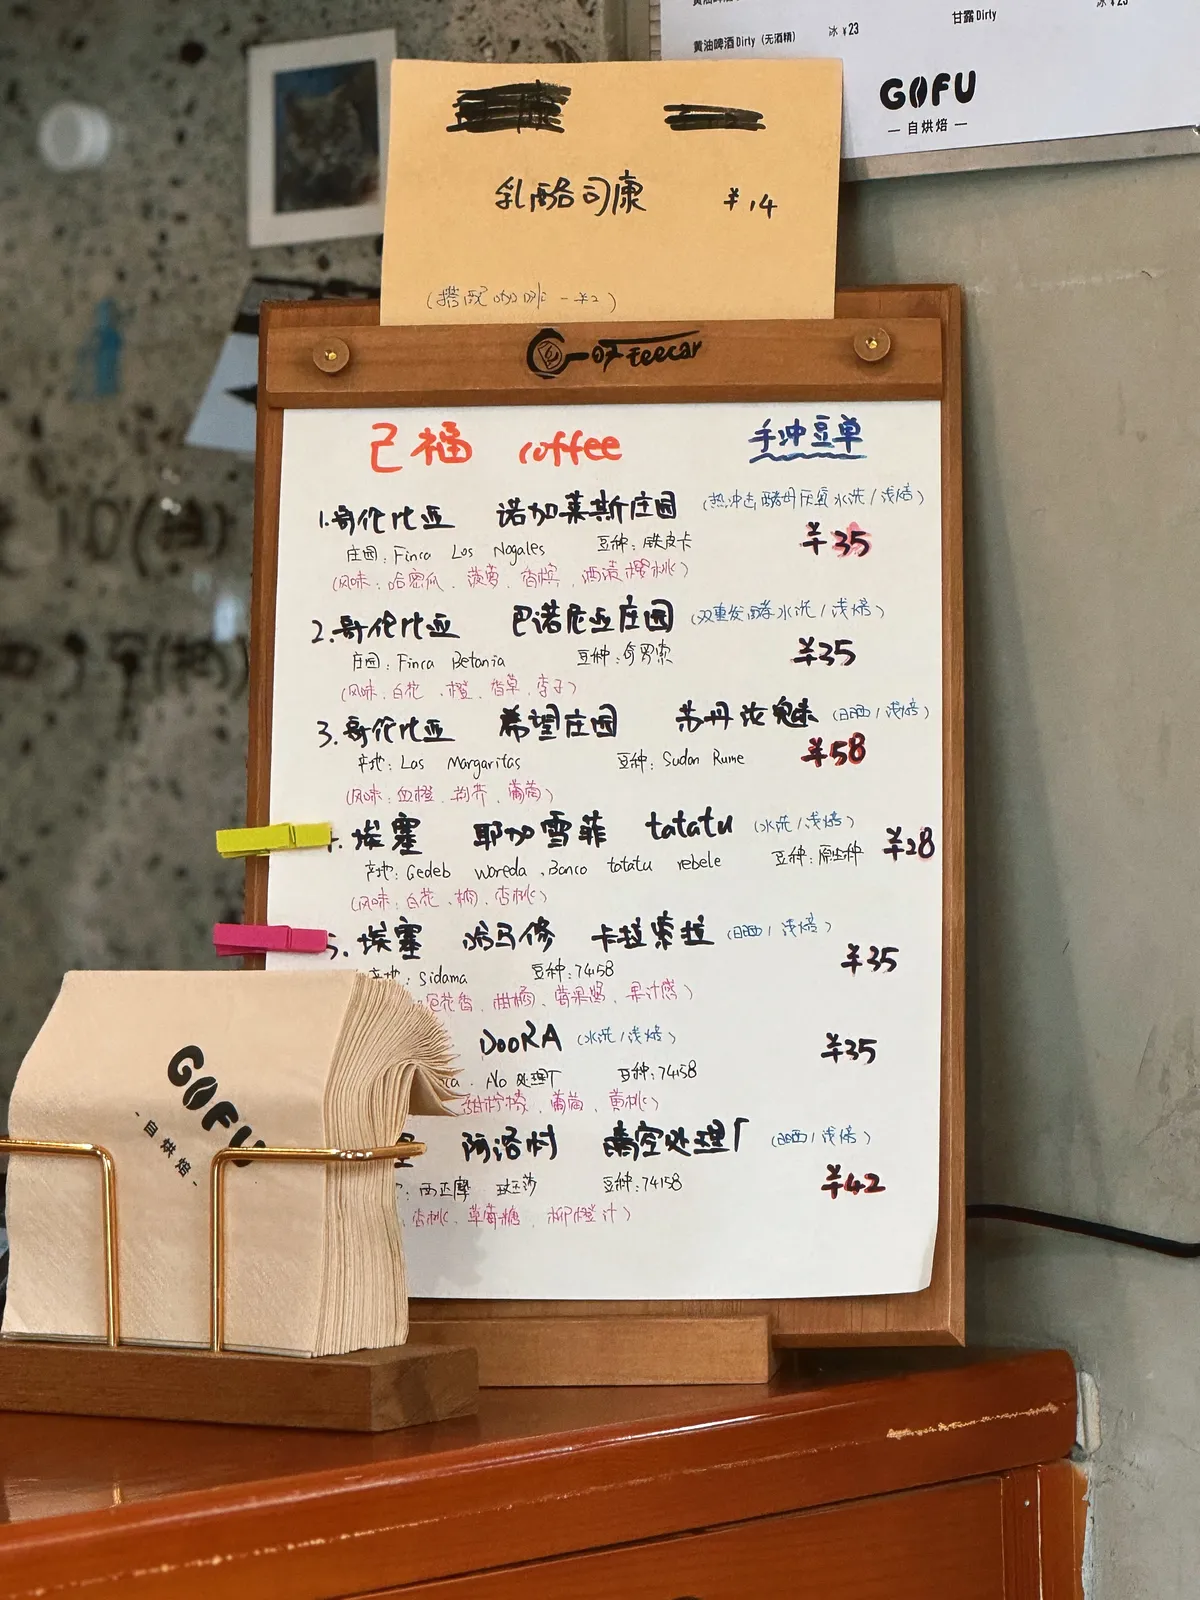 黄油啤酒Dirty（无酒精） 冰 ¥23
甘露Dirty
冰 ¥23
GOFU
— 自烘焙 —
乳酪司康 ¥14
（搭配咖啡 -¥2）
己福 coffee 手冲豆单
1.哥伦比亚 诺加莱斯庄园（热冲击酵母厌氧水洗/浅焙）
庄园：Finca Los Nogales 豆种：铁皮卡 ¥35
（风味：哈密瓜、菠萝、香槟、酒渍樱桃）
2.哥伦比亚 巴诺尼亚庄园（双重发酵水洗/浅焙）
庄园：Finca Betania 豆种：奇罗索 ¥35
（风味：白花、橙、香草、李子）
3.哥伦比亚 希望庄园 苏丹汝魅（日晒/浅焙）
产地：Las Margaritas 豆种：Sudan Rume ¥58
（风味：血橙、荆芥、葡萄）
埃塞 耶加雪菲 tatatu（水洗/浅焙）
产地：Gedeb woreda，Banco tatatu rebele 豆种：原生种 ¥28
（风味：白花、桃、杏桃）
5.埃塞 哈马修 卡拉索拉（日晒/浅焙）
产地：Sidama 豆种：74158 ¥35
花香、柑橘、苹果酱、果汁感）
DooRA（水洗/浅焙）
No 处理厂 豆种：74158 ¥35
甜柠檬、葡萄、黄桃）
阿洛村 晴空处理厂（日晒/浅焙）
：西达摩 班莎 豆种：74158 ¥42
、杏桃、草莓糖、柳橙汁）
GOFU
- 自烘焙 -